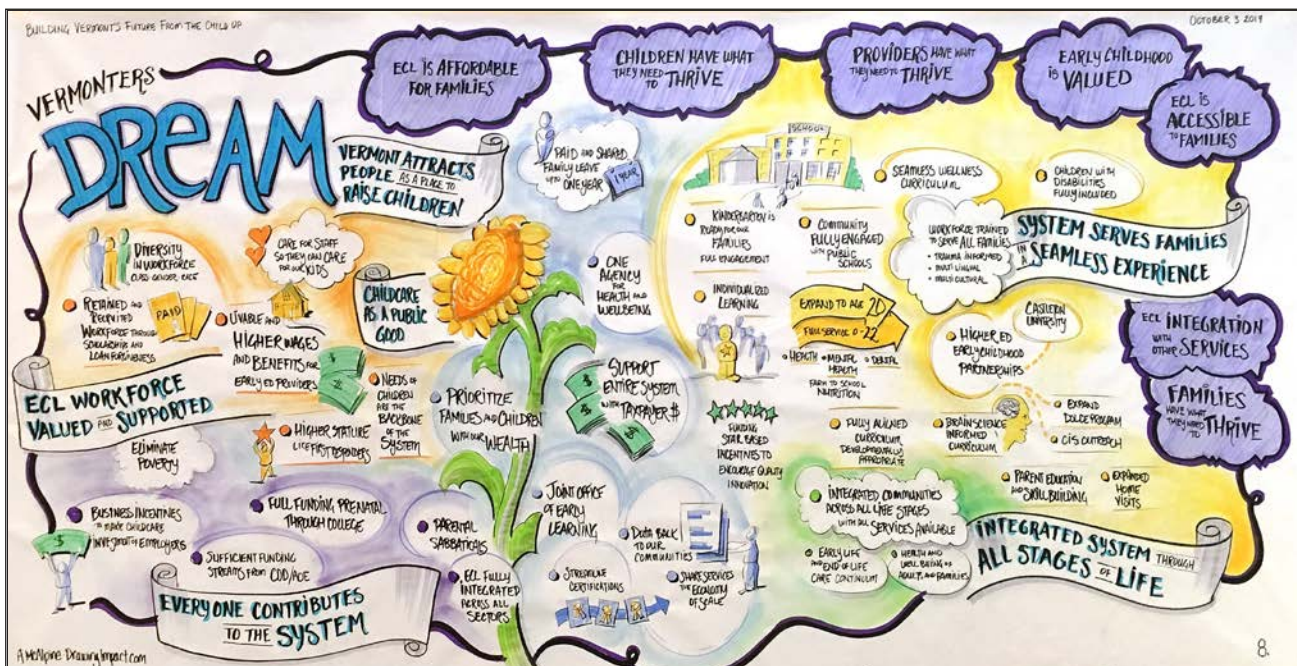 BUILDING VERMONT'S FUTURE FROM THE CHILD UP
OCTOBER 3 2019
VERMONTERS
DREAM
ECL IS AFFORDABLE
FOR FAMILIES
CHILDREN HAVE WHAT
THEY NEED TO THRIVE
PROVIDERS HAVE WHAT
THEY NEED TO THRIVE
EARLY CHILDHOOD
IS VALUED
ECL IS
ACCESSIBLE
TO FAMILIES
VERMONT ATTRACTS
PEOPLE AS A PLACE TO
RAISE CHILDREN
DIVERSITY
IN WORKFORCE
CLASS GENDER RACE
CARE FOR STAFF
SO THEY CAN CARE
FOR OUR KIDS
RETAINED AND
RECRUITED
WORKFORCE THROUGH
SCHOLARSHIPS AND
LOAN FORGIVENESS
PAID
LIVABLE AND
HIGHER WAGES
AND BENEFITS FOR
EARLY ED PROVIDERS
CHILDCARE
AS A PUBLIC
GOOD
ECL WORKFORCE
VALUED AND SUPPORTED
HIGHER STATURE
LIKE FIRST RESPONDERS
NEEDS OF
CHILDREN
ARE THE
BACKBONE
OF THE
SYSTEM
ELIMINATE
POVERTY
BUSINESS INCENTIVES
TO MAKE CHILDCARE
INVESTMENT OF EMPLOYERS
FULL FUNDING PRENATAL
THROUGH COLLEGE
SUFFICIENT FUNDING
STREAMS FROM CDD/AOE
PARENTAL
SABBATICALS
ECL FULLY
INTEGRATED
ACROSS ALL
SECTORS
EVERYONE CONTRIBUTES
TO THE SYSTEM
PAID AND SHARED
FAMILY LEAVE
UP TO
ONE YEAR
1 YEAR
ONE
AGENCY
FOR
HEALTH AND
WELLBEING
PRIORITIZE
FAMILIES AND CHILDREN
WITH OUR
WEALTH
SUPPORT
ENTIRE SYSTEM
WITH TAXPAYER $
JOINT OFFICE
OF EARLY
LEARNING
DATA BACK
TO OUR
COMMUNITIES
STREAMLINE
CERTIFICATIONS
SHARE SERVICES
THE ECONOMY
OF SCALE
SCHOOL
KINDERGARTEN IS
READY FOR OUR
FAMILIES
FULL ENGAGEMENT
COMMUNITY
FULLY ENGAGED
WITH PUBLIC
SCHOOLS
INDIVIDUALIZED
LEARNING
EXPAND TO AGE 20
FULL SERVICE 0-22
HEALTH
MENTAL
HEALTH
DENTAL
FARM TO SCHOOL
NUTRITION
FUNDING
STAR BASED
INCENTIVES TO
ENCOURAGE QUALITY
INNOVATION
FULLY ALIGNED
CURRICULUM
DEVELOPMENTALLY
APPROPRIATE
SEAMLESS WELLNESS
CURRICULUM
CHILDREN WITH
DISABILITIES
FULLY INCLUDED
WORKFORCE TRAINED
TO SERVE ALL FAMILIES
• TRAUMA INFORMED
• MULTI LINGUAL
• MULTI CULTURAL
SYSTEM SERVES FAMILIES
IN A SEAMLESS EXPERIENCE
CASTLETON
UNIVERSITY
HIGHER ED
EARLY CHILDHOOD
PARTNERSHIPS
BRAIN SCIENCE
INFORMED
CURRICULUM
EXPAND
DULCE PROGRAM
CIS OUTREACH
PARENT EDUCATION
AND SKILL BUILDING
EXPANDED
HOME
VISITS
ECL INTEGRATION
WITH OTHER SERVICES
FAMILIES
HAVE WHAT
THEY NEED TO THRIVE
INTEGRATED COMMUNITIES
ACROSS ALL LIFE STAGES
WITH ALL
SERVICES AVAILABLE
EARLY LIFE
AND END OF LIFE
CARE CONTINUUM
HEALTH AND
WELL BEING OF
ADULT AND FAMILIES
INTEGRATED SYSTEM THROUGH
ALL STAGES OF LIFE
A McAlpine DrawingImpact.com
8.